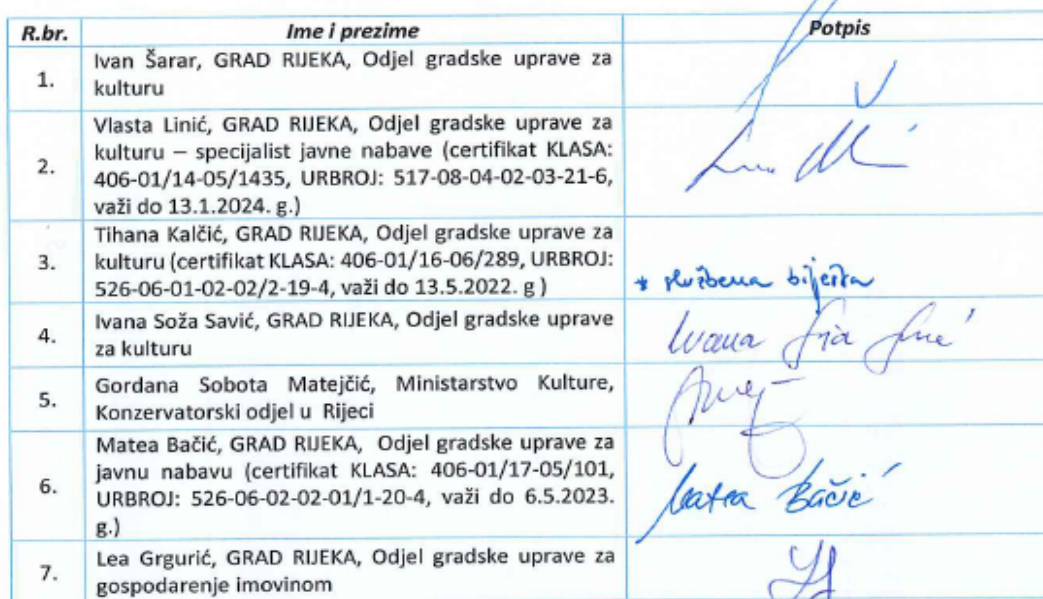 R.br. Ime i prezime Potpis
1. Ivan Šarar, GRAD RIJEKA, Odjel gradske uprave za
kulturu
Vlasta Linić, GRAD RIJEKA, Odjel gradske uprave za
kulturu – specijalist javne nabave (certifikat KLASA:
2. 406-01/14-05/1435, URBROJ: 517-08-04-02-03-21-6,
važi do 13.1.2024. g.)
Tihana Kalčić, GRAD RIJEKA, Odjel gradske uprave za
3. kulturu (certifikat KLASA: 406-01/16-06/289, URBROJ:
526-06-01-02-02/2-19-4, važi do 13.5.2022. g ) * službena bilješka
4. Ivana Soža Savić, GRAD RIJEKA, Odjel gradske uprave Ivana
za kulturu
5. Gordana Sobota Matejčić, Ministarstvo Kulture,
Konzervatorski odjel u Rijeci
Matea Bačić, GRAD RIJEKA, Odjel gradske uprave za
javnu nabavu (certifikat KLASA: 406-01/17-05/101,
6. URBROJ: 526-06-02-02-01/1-20-4, važi do 6.5.2023. Matea Bačić
g.)
7. Lea Grgurić, GRAD RIJEKA, Odjel gradske uprave za
gospodarenje imovinom